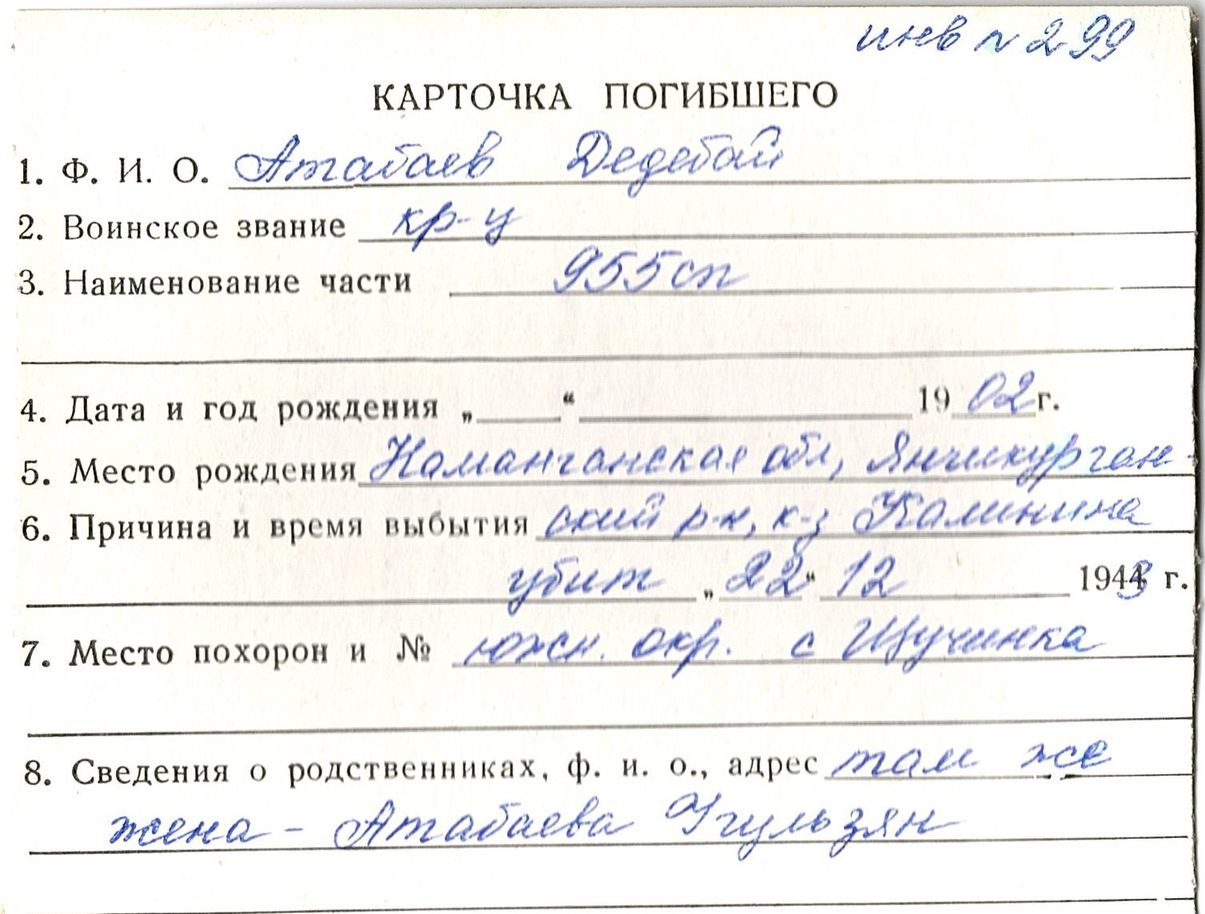 инв № 299
КАРТОЧКА ПОГИБШЕГО
1. Ф. И. О. Атабаев Дедебай
2. Воинское звание кр-ц
3. Наименование части 955 сп
4. Дата и год рождения „ “ 1902 г.
5. Место рождения Наманганская обл, Янчикурган-
6. Причина и время выбытия ский р-н, к-з Калинина
убит „22“ 12 1943 г.
7. Место похорон и № южн. окр. с Щучинка
8. Сведения о родственниках, ф. и. о., адрес там же
жена - Атабаева Угульзян